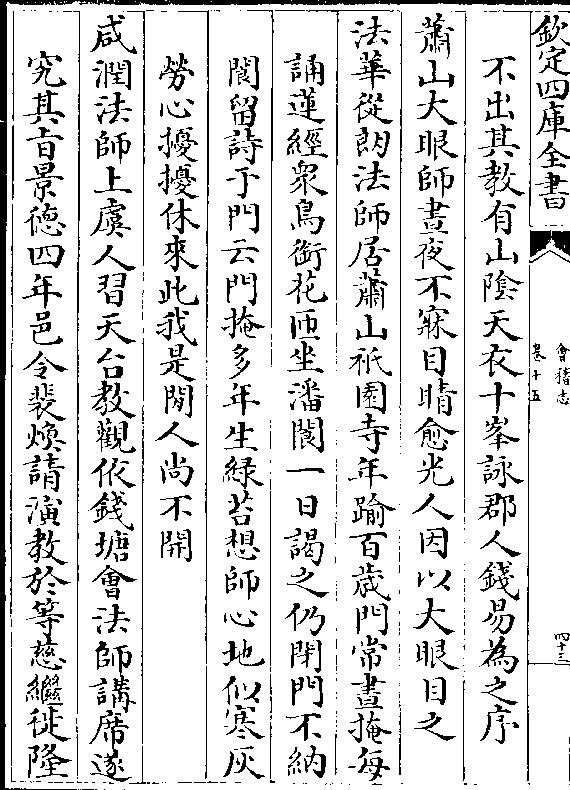 欽定四庫全書
會稽志
卷十五
四十三
不出其教有山陰天衣十峯詠郡人錢易為之序
蕭山大眼師晝夜不寐目睛愈光人因以大眼目之
法華從朗法師居蕭山祇園寺年踰百歲門常晝掩每
誦蓮經衆鳥銜花匝坐潘閬一日謁之仍閉門不納
閬留詩于門云門掩多年生緑苔想師心地似寒灰
勞心擾擾休來此我是閒人尚不開
咸潤法師上虞人習天台教觀依錢塘會法師講席遂
究其㫖景德四年邑令裴煥請演教於等慈繼徙隆